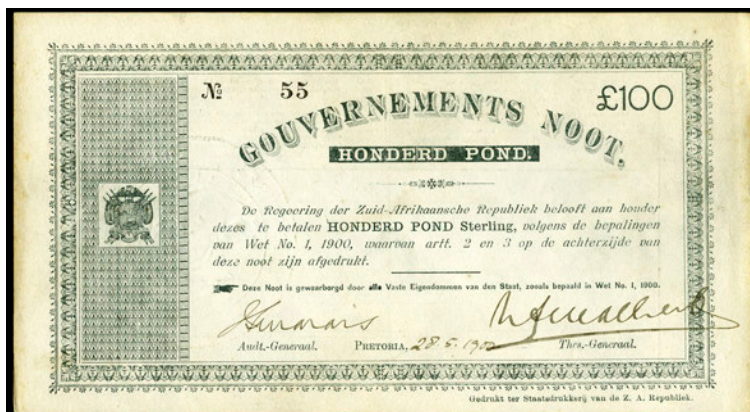 № 55 £100
GOUVERNEMENTS NOOT,
HONDERD POND.
De Regeering der Zuid-Afrikaansche Republiek belooft aan houder
dezes te betalen HONDERD POND Sterling, volgens de bepalingen
van Wet No. 1, 1900, waarvan artt. 2 en 3 op de achterzijde van
deze noot zijn afgedrukt.
Deze Noot is gewaarborgd door alle Vaste Eigendommen van den Staat, zooals bepaald in Wet No. 1, 1900.
Audt.-Generaal. PRETORIA, 28.5.1900 Thes.-Generaal.
Gedrukt ter Staatsdrukkerij van de Z. A. Republiek.